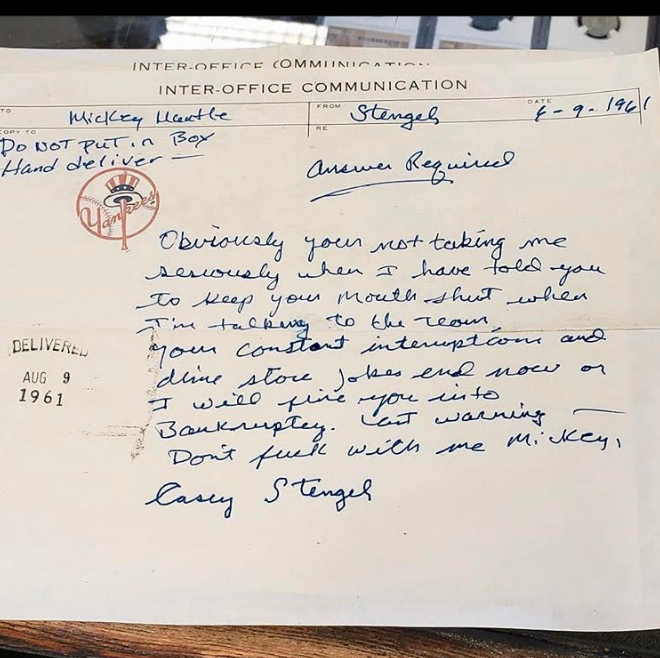 INTER-OFFICE COMMUNICATION
INTER-OFFICE COMMUNICATION
TO Mickey Mantle FROM Stengel DATE 6-9-1961
COPY TO RE
DO NOT PUT in Box
Hand deliver —
Answer Required
Yankees
Obviously your not taking me
seriously when I have told you
to keep your mouth shut when
I'm talking to the team,
your constant interruptions and
dime store jokes end now or
I will fine you into
Bankruptcy. Last warning —
Don't fuck with me Mickey,
Casey Stengel
DELIVERED
AUG 9
1961